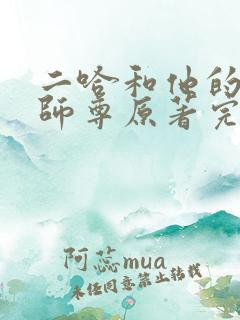 二哈和他的
師尊原著完
阿蕊mua
未经同意禁止转载